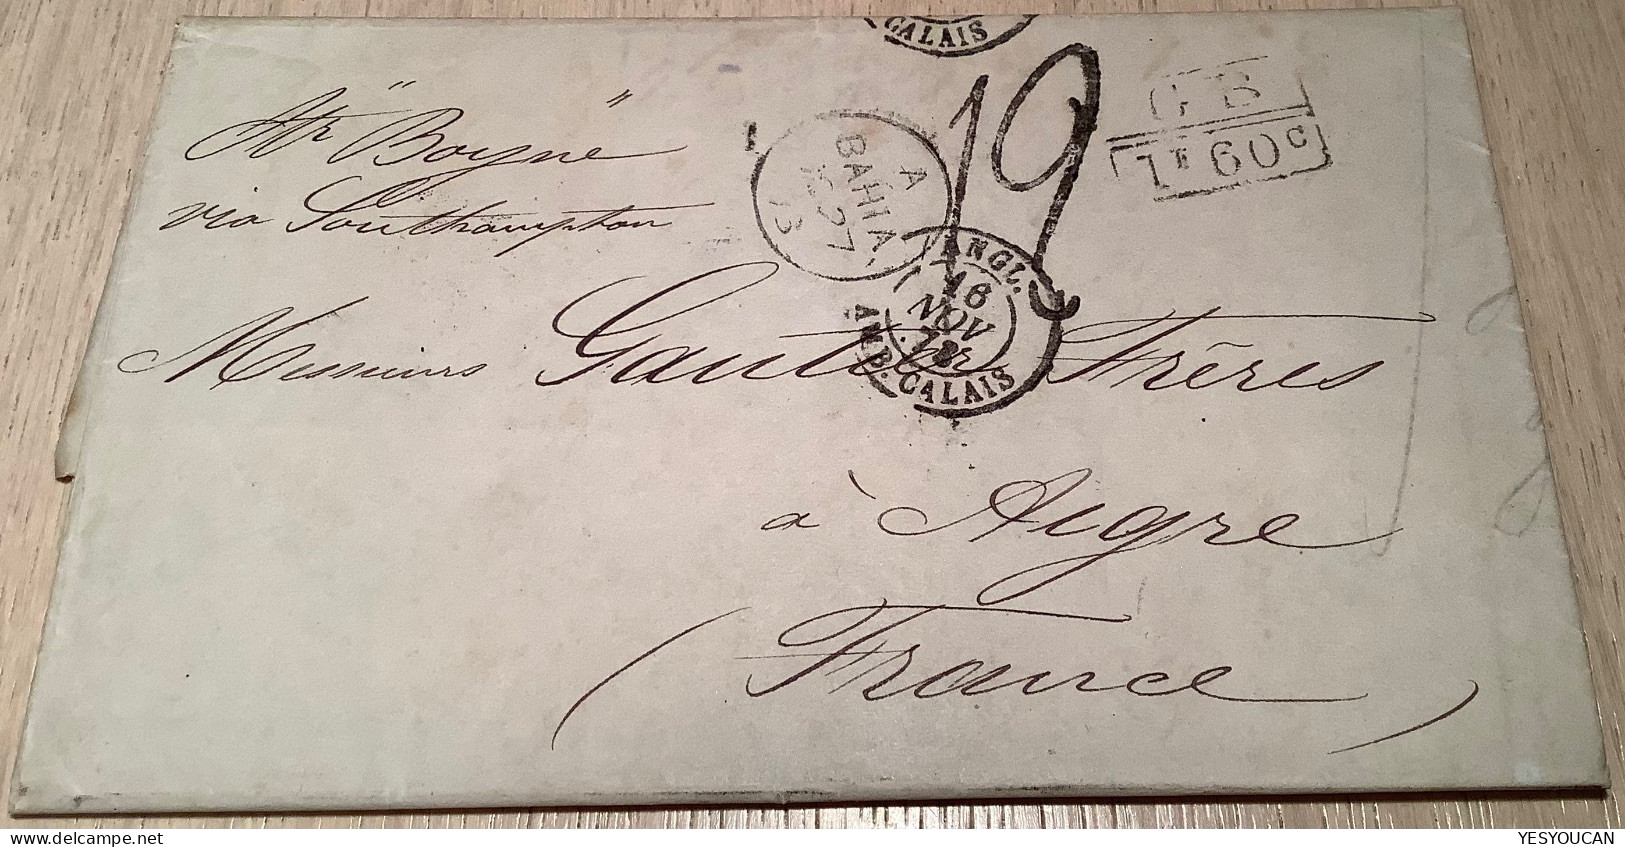 CALAIS
Str "Boyne"
via Southampton
A
BAHIA
27
73
19
GB
1F60c
ANGL.
16
NOV
73
AMB. CALAIS
Messieurs Gautier Frères
à Aigre
(France)
YESYOUCAN